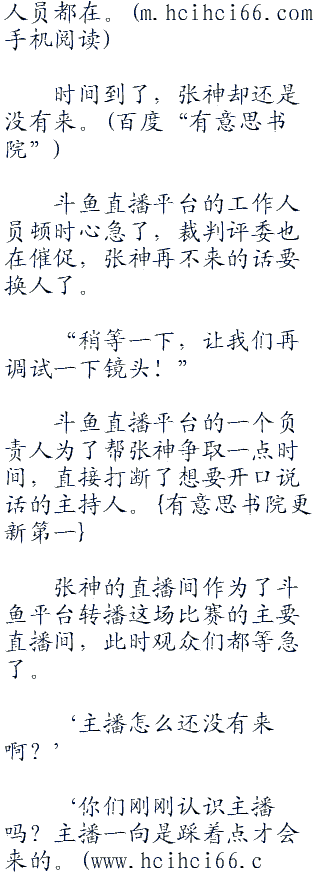 人员都在。(m.hcihci66.com
手机阅读)
时间到了，张神却还是
没有来。(百度“有意思书
院”)
斗鱼直播平台的工作人
员顿时心急了，裁判评委也
在催促，张神再不来的话要
换人了。
“稍等一下，让我们再
调试一下镜头！”
斗鱼直播平台的一个负
责人为了帮张神争取一点时
间，直接打断了想要开口说
话的主持人。{有意思书院更
新第一}
张神的直播间作为了斗
鱼平台转播这场比赛的主要
直播间，此时观众们都等急
了。
‘主播怎么还没有来
啊？’
‘你们刚刚认识主播
吗？主播一向是踩着点才会
来的。(www.hcihci66.c